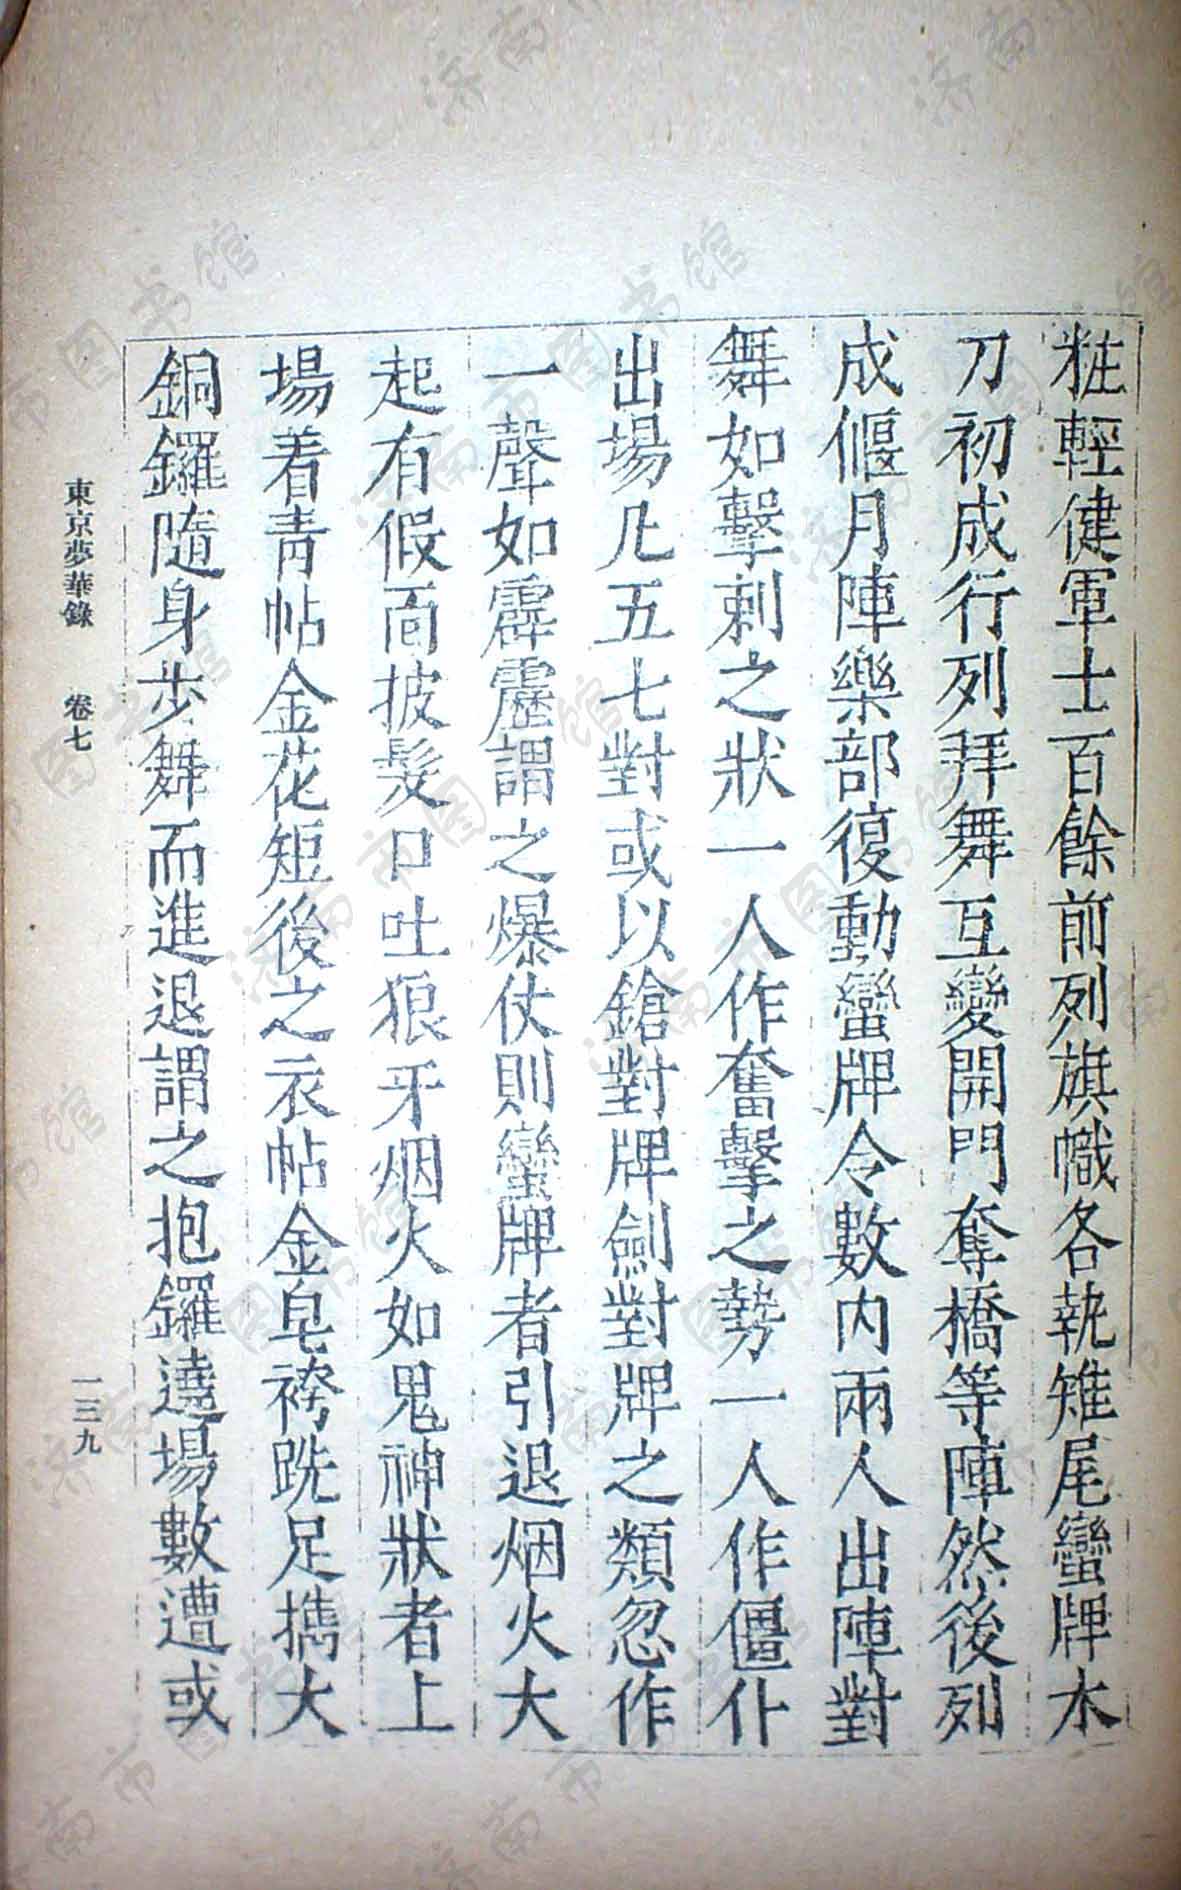 粧輕健軍士百餘前列旗幟各執雉尾蠻牌木
刀初成行列拜舞互變開門奪橋等陣然後列
成偃月陣樂部復動蠻牌令數内兩人出陣對
舞如擊刺之狀一人作奮擊之勢一人作僵仆
出場凡五七對或以鎗對牌劍對牌之類忽作
一聲如霹靂謂之爆仗則蠻牌者引退烟火大
起有假面披髮口吐狼牙烟火如鬼神狀者上
場着青帖金花短後之衣帖金皂袴跣足擕大
銅鑼隨身步舞而進退謂之抱鑼遶場數遭或
東京夢華錄 卷七 一三九
济南市图书馆